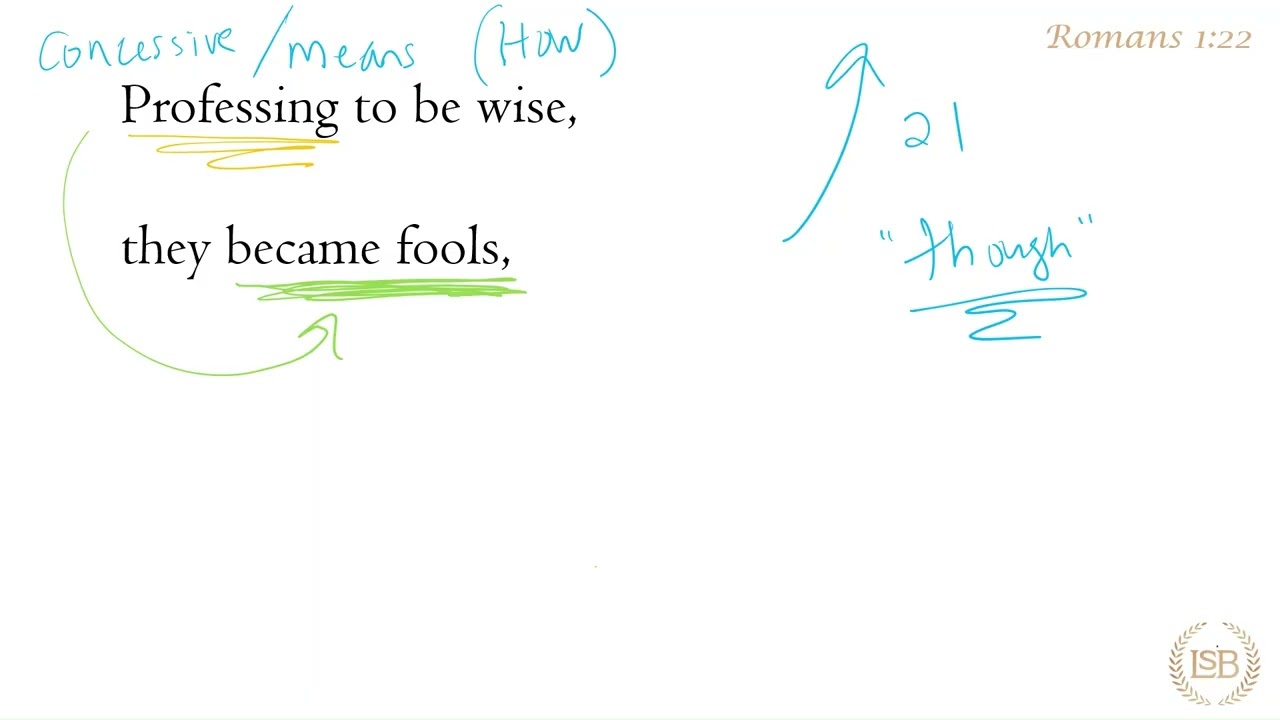 Concessive / means (How)
Romans 1:22
Professing to be wise,
21
they became fools,
"though"
LSB